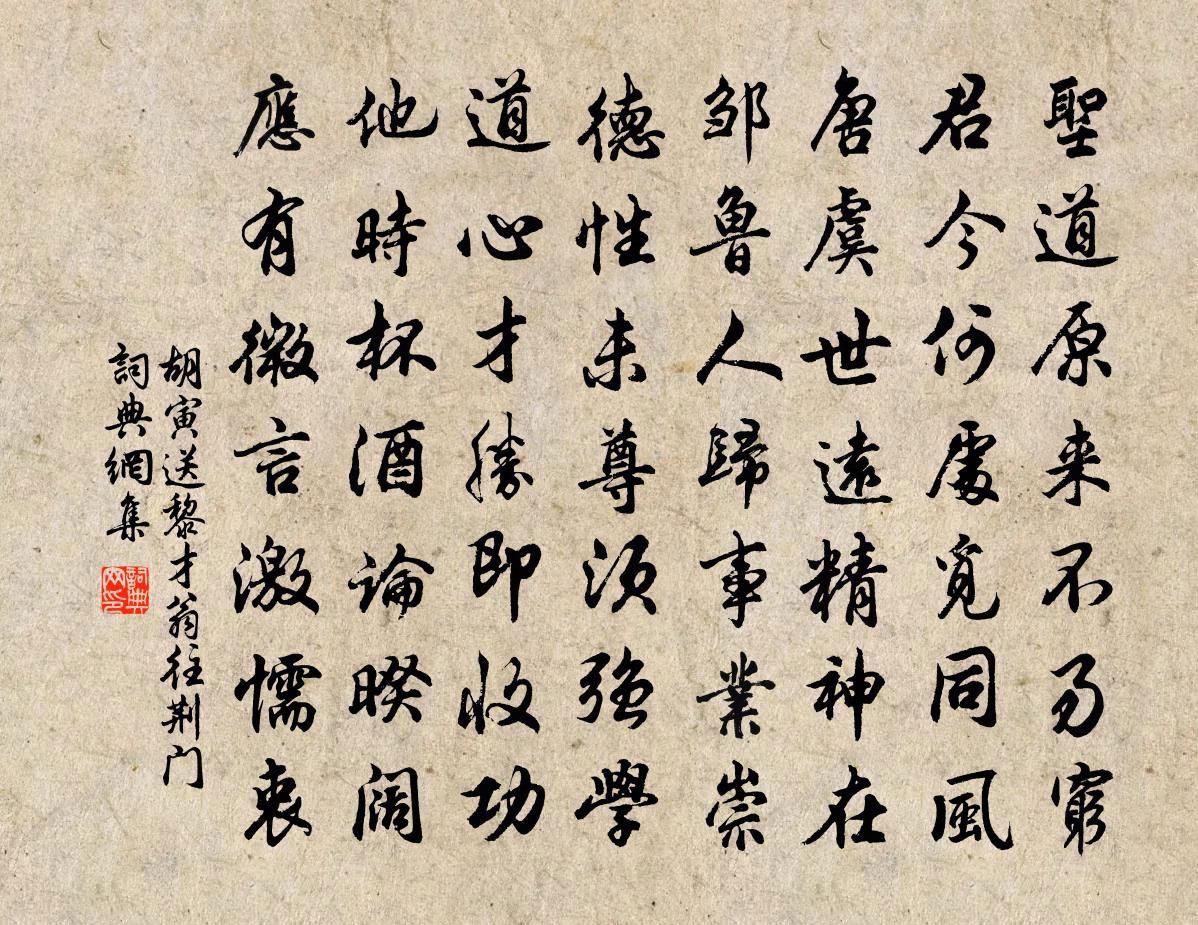 聖道原来不易窮
君今何處覓同風
唐虞世遠精神在
邹魯人歸事業崇
德性未尊须强學
道心才勝即收功
他時杯酒論暌阔
應有微言激懦衷
胡寅送黎才翁往荆门
詞典網集
詞典网印